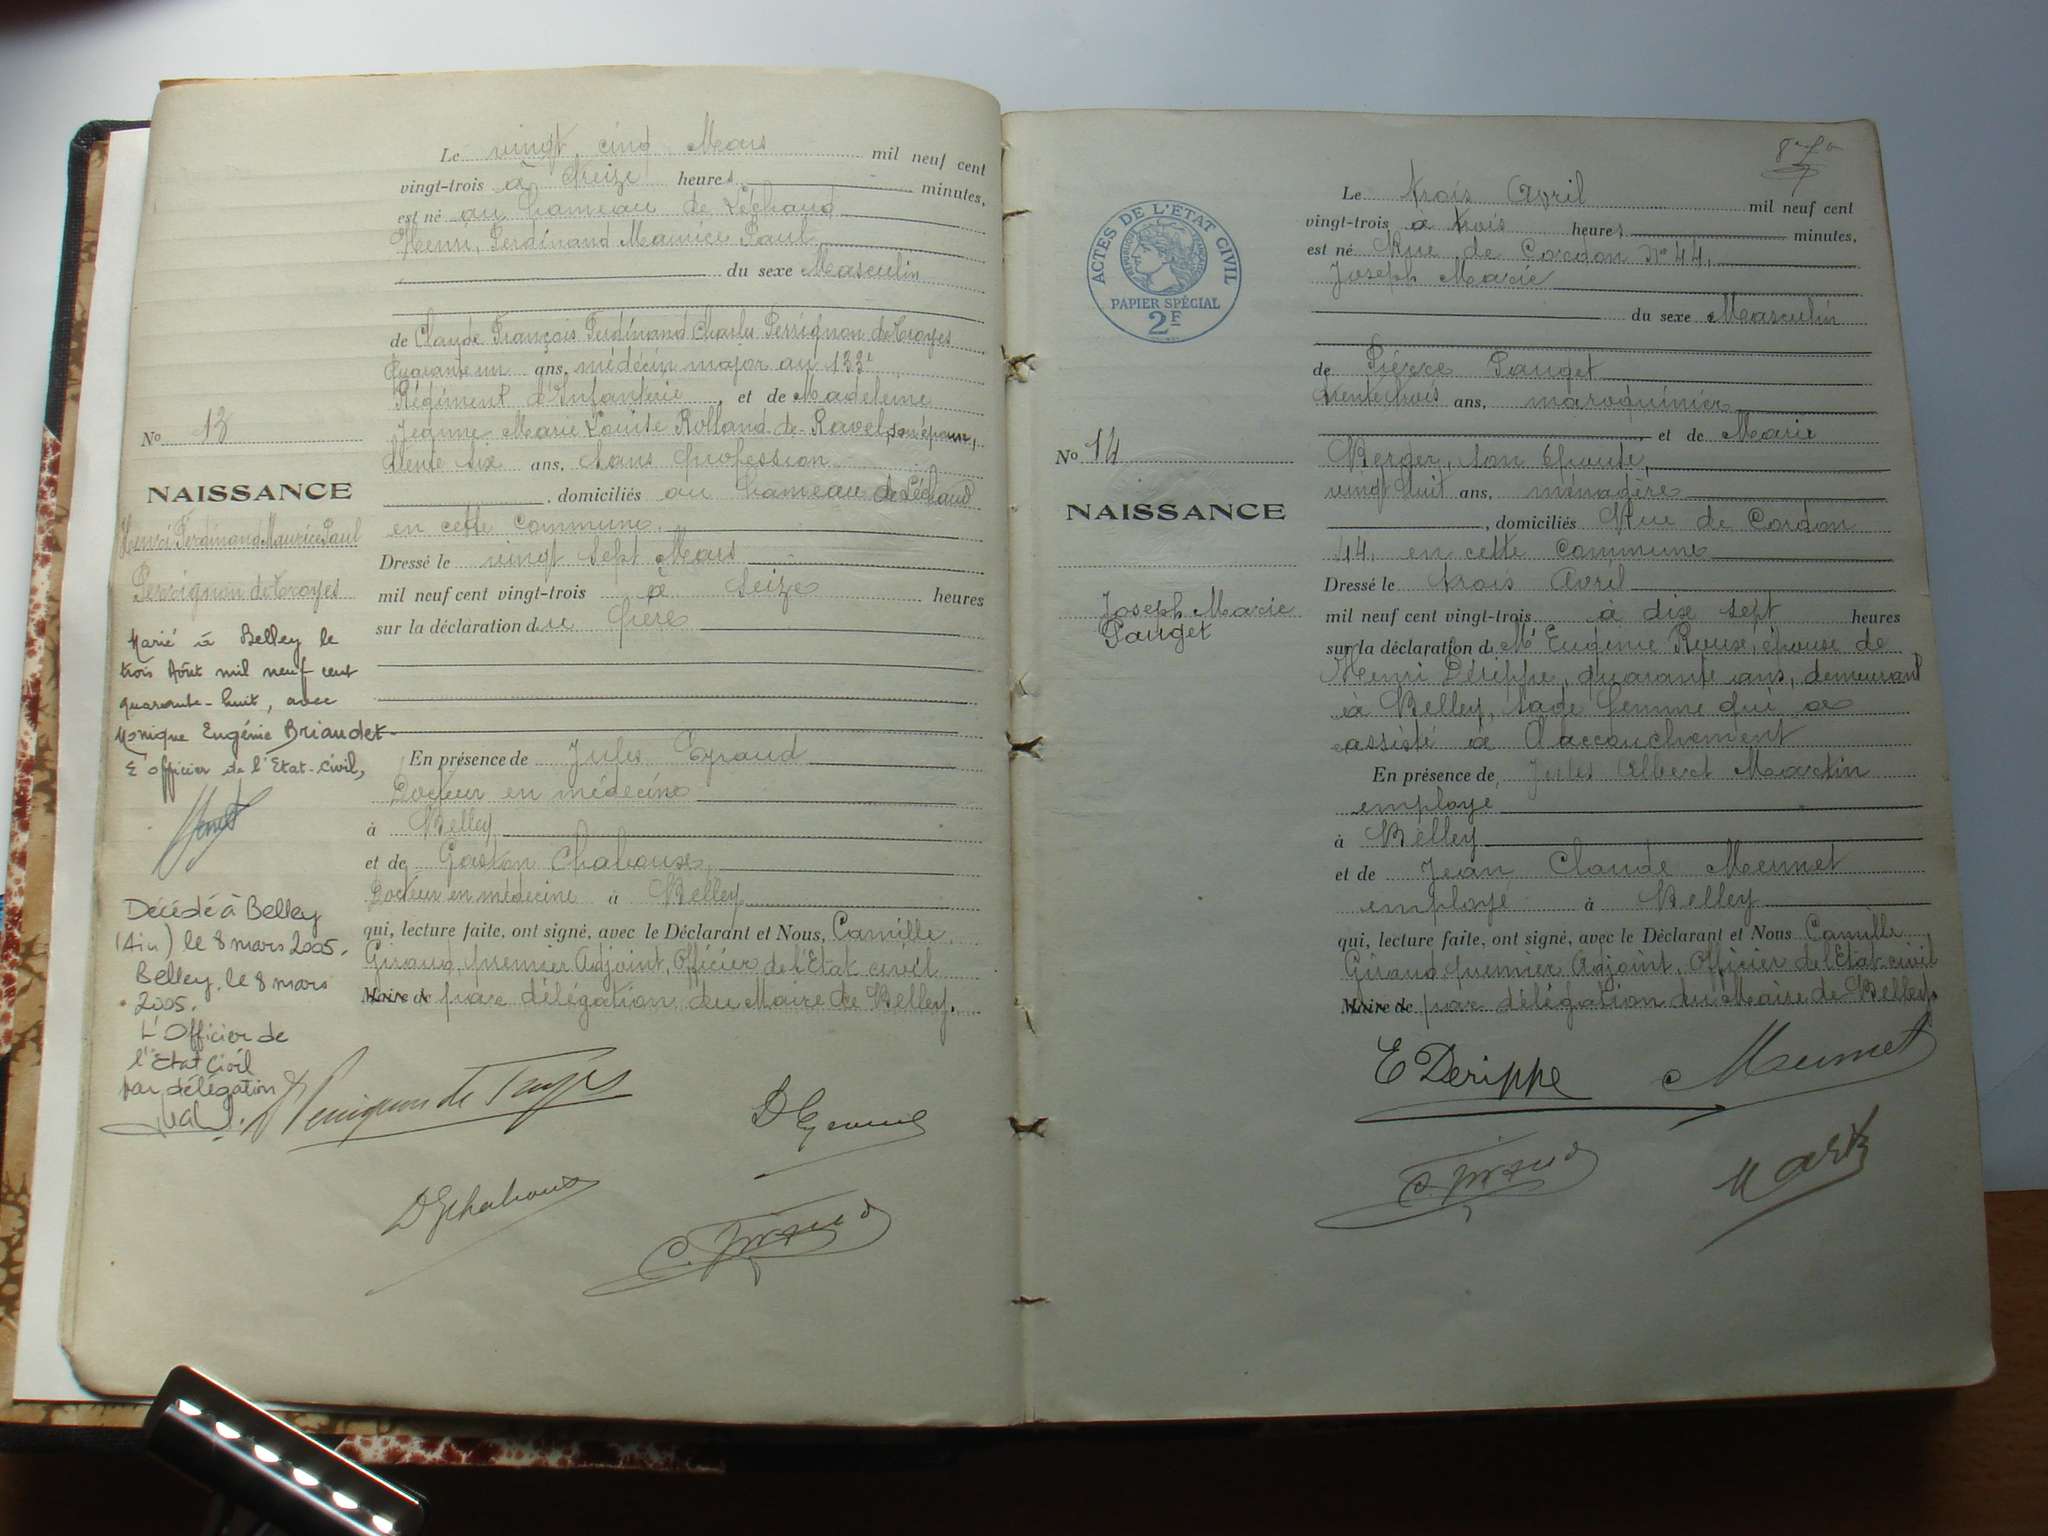 Le vingt cinq Mars mil neuf cent
vingt-trois à treize heures minutes,
est né au hameau de Léchaud
Henri, Ferdinand Maurice Paul
du sexe Masculin
de Claude François Ferdinand Charles Perrignon de Troyes
Quarante un ans, médecin major au 133e
Régiment d'Infanterie, et de Madeleine
Jeanne Marie Louise Rolland de Ravel, son épouse,
trente six ans, sans profession
, domiciliés au hameau de Léchaud
en cette commune.
Dressé le vingt sept Mars
mil neuf cent vingt-trois à seize heures
sur la déclaration du Père
En présence de Jules Egraud
Docteur en médecine
à Belley
et de Gaston Chaboux
Docteur en médecine à Belley
qui, lecture faite, ont signé, avec le Déclarant et Nous, Camille
Giraud, premier Adjoint, Officier de l'Etat civil
Maire de par délégation du Maire de Belley.
No 13
NAISSANCE
Henri Ferdinand Maurice Paul
Perrignon de Troyes
Marié à Belley le
trois Août mil neuf cent
quarante-huit, avec
Monique Eugénie Briaudet
L'officier de l'Etat-Civil,
Décédé à Belley
(Ain) le 8 mars 2005.
Belley, le 8 mars
2005.
L'Officier de
l'Etat Civil
par délégation
Perrignon de Troyes
D Chaboux
C. Giraud
8
ACTES DE L'ÉTAT CIVIL
RÉPUBLIQUE FRANÇAISE
PAPIER SPÉCIAL
2F
Le trois Avril mil neuf cent
vingt-trois à trois heures, minutes,
est né Rue de Cordon No 44,
Joseph Marie
du sexe Masculin
de Pierre Pauget
trente trois ans, maroquinier
et de Marie
Berger, son épouse,
vingt huit ans, ménagère
, domiciliés Rue de Cordon
44, en cette commune
Dressé le trois Avril
mil neuf cent vingt-trois à dix sept heures
sur la déclaration de Me Eugénie Roux, épouse de
Henri Dérippe, quarante ans, demeurant
à Belley, sage femme qui a
assisté à l'accouchement
En présence de Jules Albert Martin
employé
à Belley
et de Jean Claude Meunet
employé à Belley
qui, lecture faite, ont signé, avec le Déclarant et Nous Camille
Giraud premier Adjoint, Officier de l'Etat civil
Maire de par délégation du Maire de Belley.
No 14
NAISSANCE
Joseph Marie
Pauget
E Derippe Meunet
C. Giraud Martin